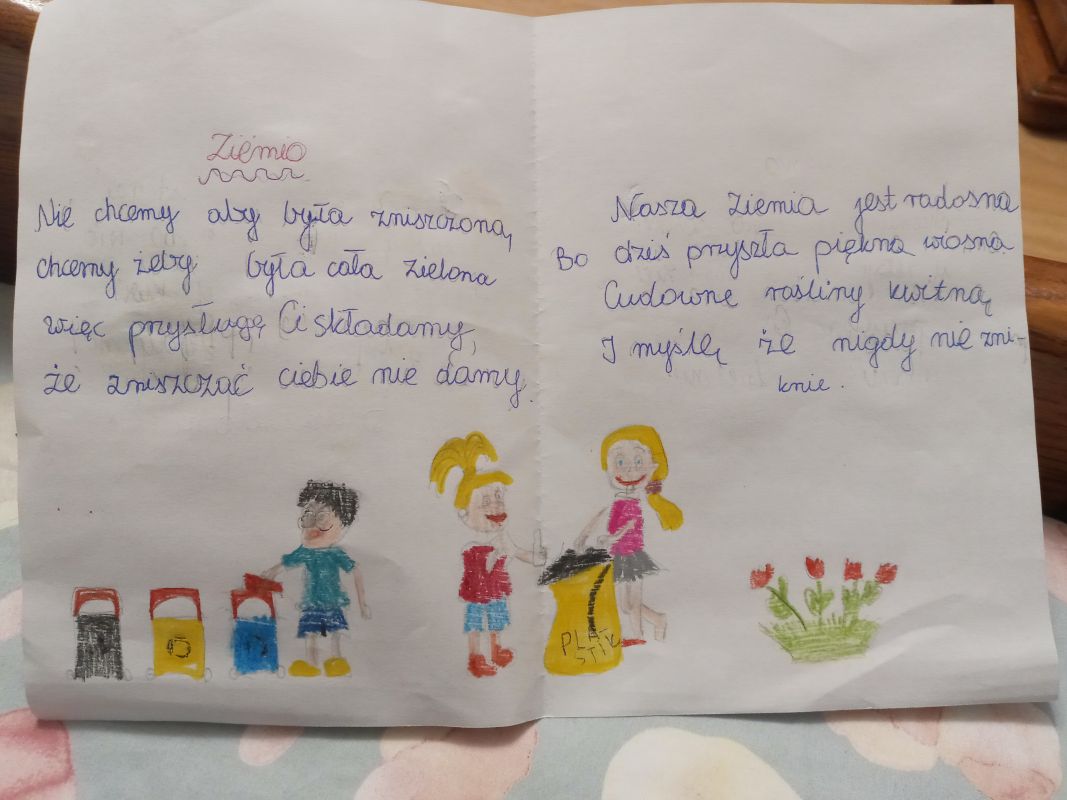 Ziemio
Nie chcemy aby była zniszczona,
chcemy żeby była cała zielona
więc przysługę Ci składamy,
że zniszczać ciebie nie damy.
Nasza Ziemia jest radosna
Bo dziś przyszła piękna wiosna
Cudowne rośliny kwitną,
I myślę że nigdy nie zni-
knie.
PLA
STIK